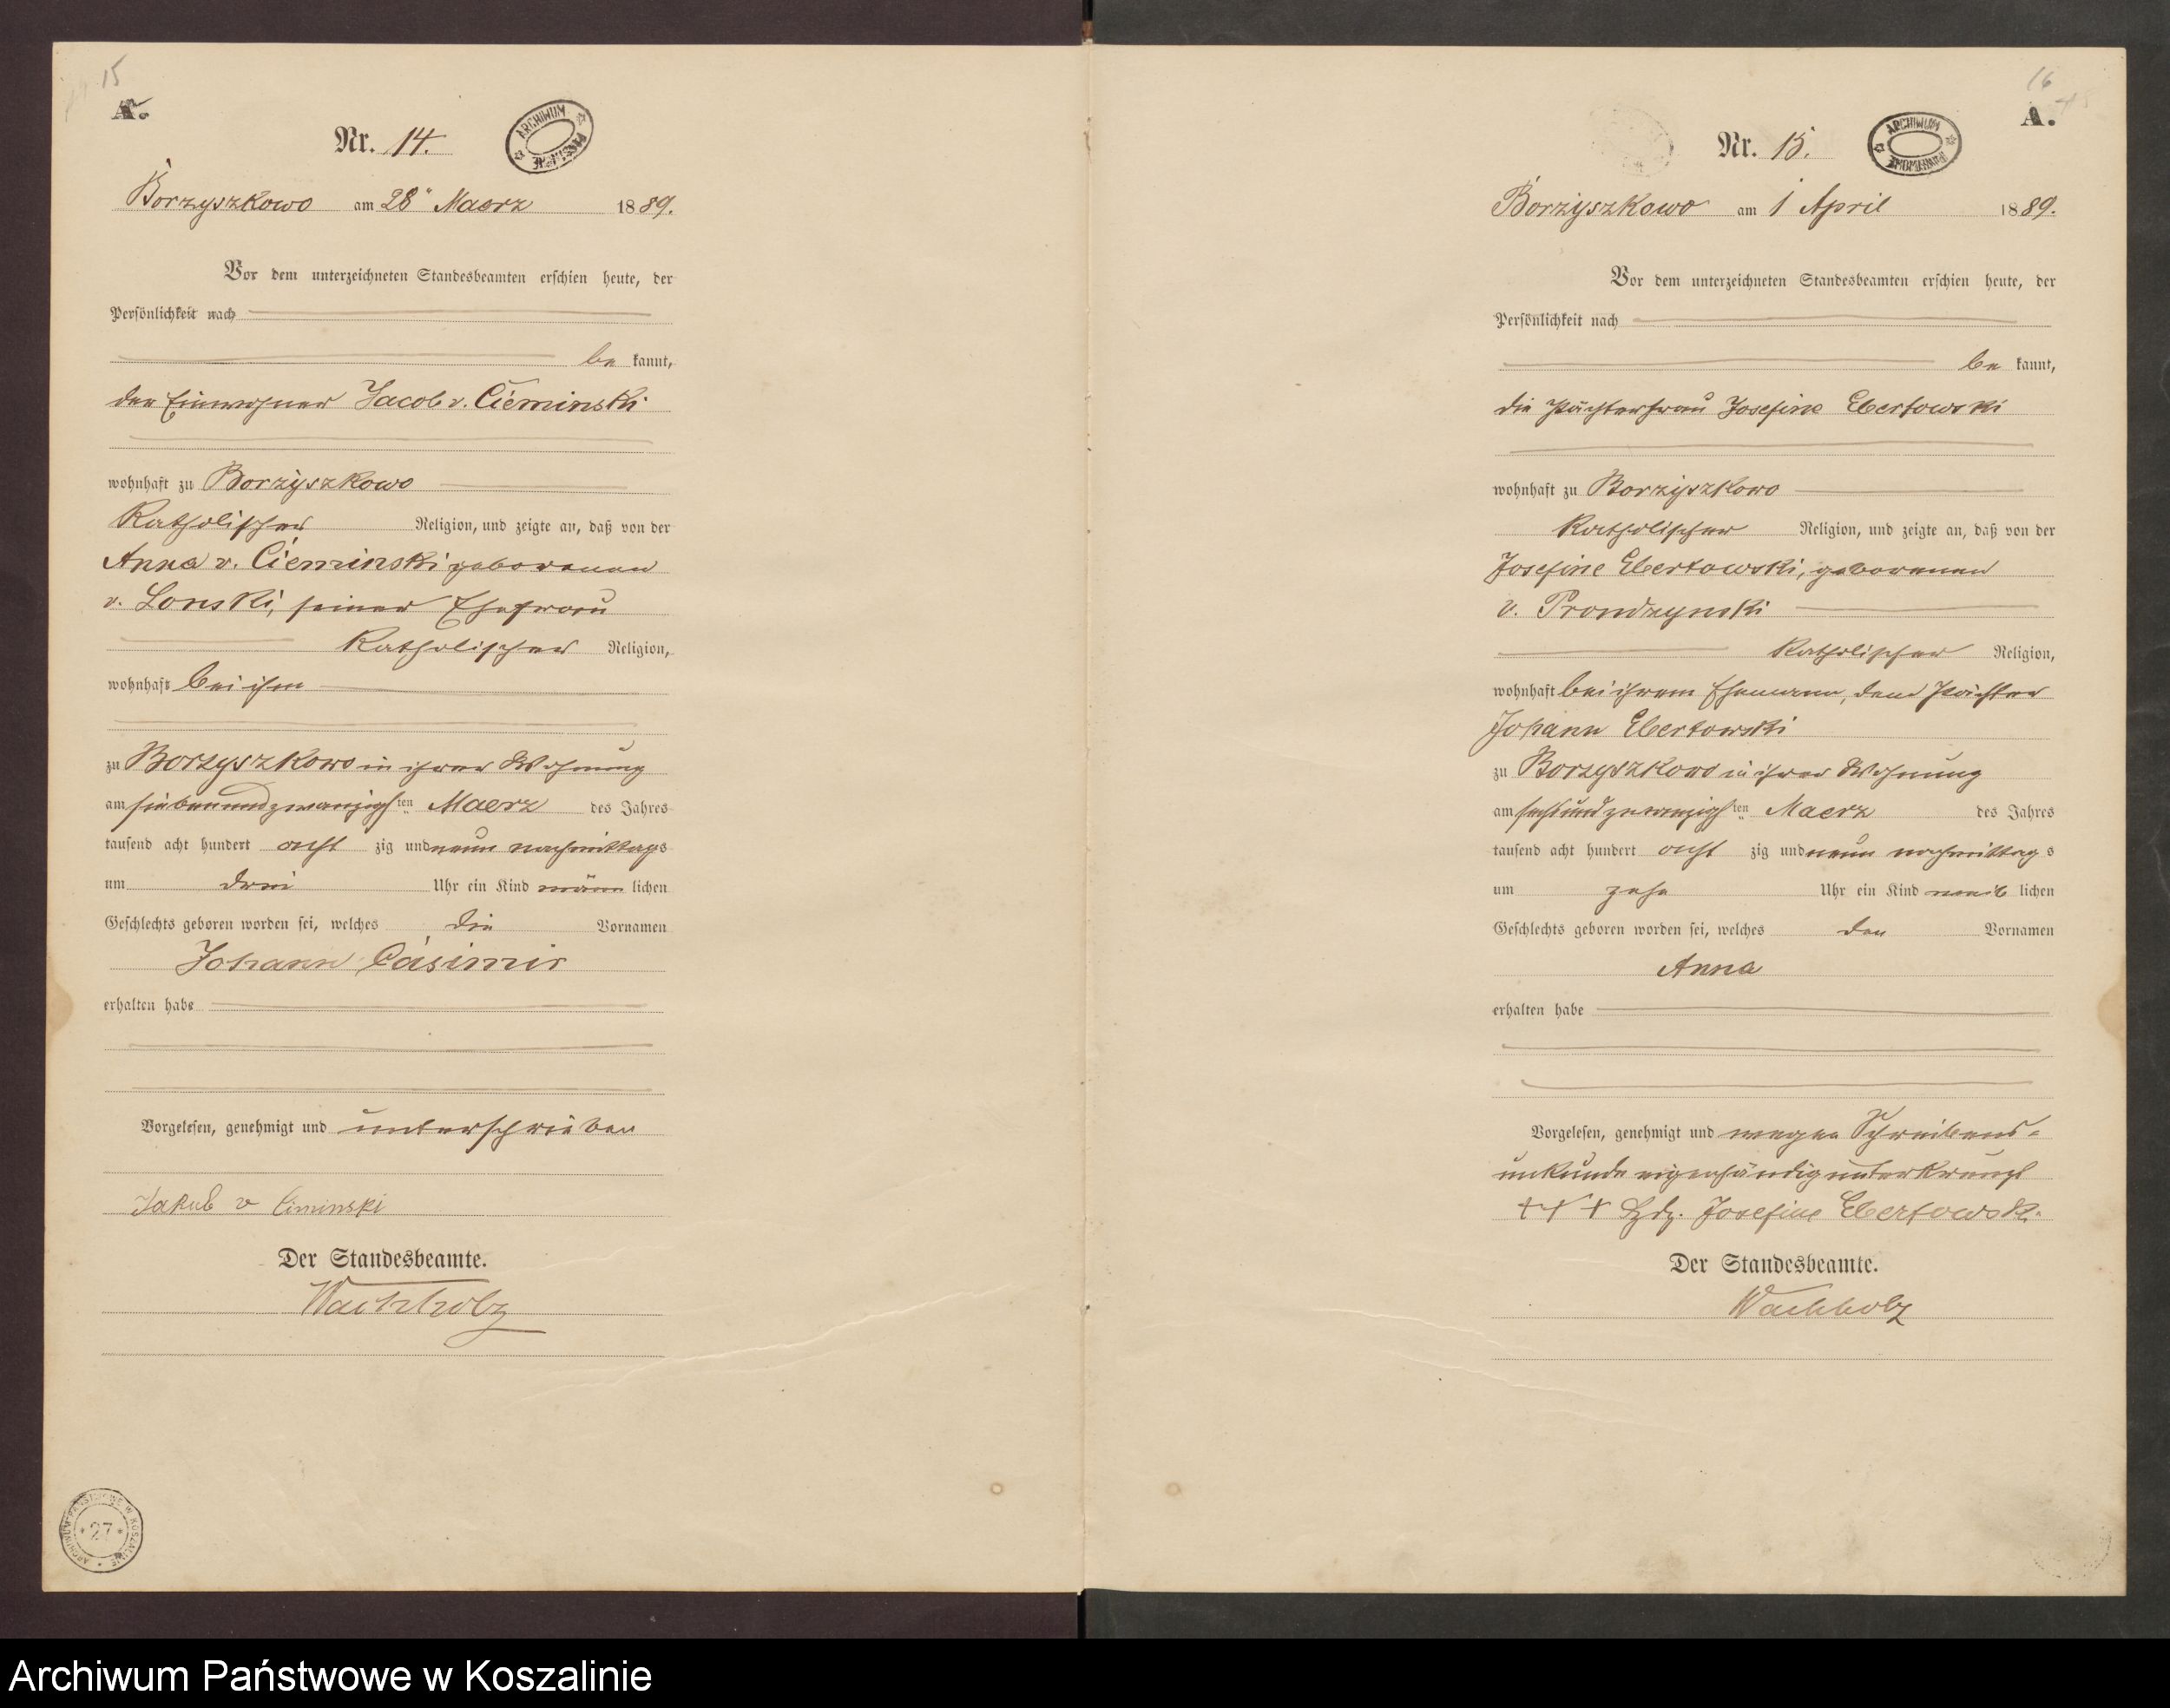 15
A.
Nr. 14.
ARCHIWUM PAŃSTWOWE
Borzyszkowo am 28ⁿ Maerz 1889.
Vor dem unterzeichneten Standesbeamten erschien heute, der
Persönlichkeit nach
be kannt,
der Einwohner Jacob v. Cieminski
wohnhaft zu Borzyszkowo
Katholischer Religion, und zeigte an, daß von der
Anna v. Cieminski geborenen
v. Lonski, seiner Ehefrau
Katholischer Religion,
wohnhaft bei ihm
zu Borzyszkowo in ihrer Wohnung
am siebenundzwanzigsten Maerz des Jahres
tausend acht hundert acht zig und neun nachmittags
um drei Uhr ein Kind männ lichen
Geschlechts geboren worden sei, welches die Vornamen
Johann Casimir
erhalten habe
Vorgelesen, genehmigt und unterschrieben
Jakub v Ciminski
Der Standesbeamte.
Wachholz
ARCHIWUM PAŃSTWOWE W KOSZALINIE
27
16
A.
Nr. 15.
ARCHIWUM PAŃSTWOWE
Borzyszkowo am 1 April 1889.
Vor dem unterzeichneten Standesbeamten erschien heute, der
Persönlichkeit nach
be kannt,
die Pächterfrau Josefine Ebertowski
wohnhaft zu Borzyszkowo
Katholischer Religion, und zeigte an, daß von der
Josefine Ebertowski, geborenen
v. Prondzynski
Katholischer Religion,
wohnhaft bei ihrem Ehemann, dem Pächter
Johann Ebertowski
zu Borzyszkowo in ihrer Wohnung
am sechsundzwanzigsten Maerz des Jahres
tausend acht hundert acht zig und neun nachmittag s
um zehn Uhr ein Kind weib lichen
Geschlechts geboren worden sei, welches den Vornamen
Anna
erhalten habe
Vorgelesen, genehmigt und wegen Schreibens-
unkunde eigenhändig unterkreuzt
+++ Hdz. Josefine Ebertowski
Der Standesbeamte.
Wachholz
Archiwum Państwowe w Koszalinie